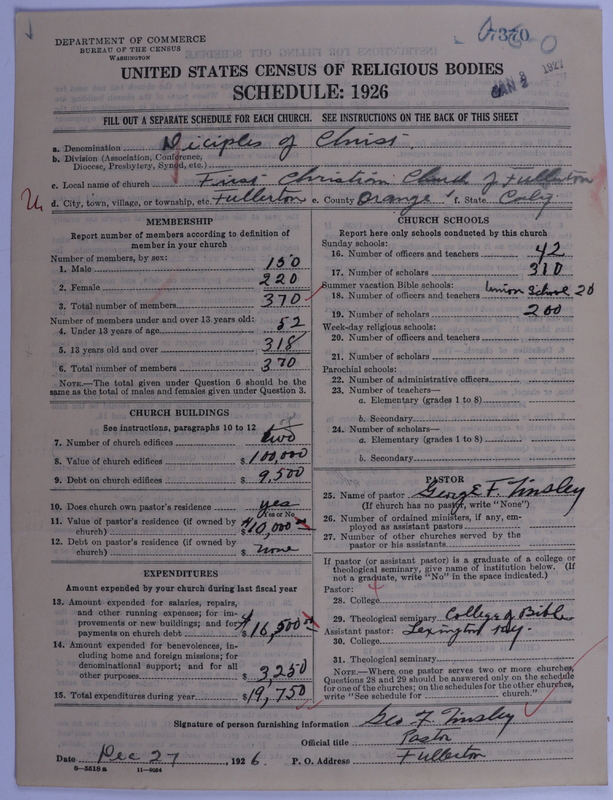 DEPARTMENT OF COMMERCE
BUREAU OF THE CENSUS
WASHINGTON
UNITED STATES CENSUS OF RELIGIOUS BODIES
SCHEDULE: 1926
FILL OUT A SEPARATE SCHEDULE FOR EACH CHURCH. SEE INSTRUCTIONS ON THE BACK OF THIS SHEET
a. Denomination Diciples of Christ
b. Division (Association, Conference, Diocese, Presbytery, Synod, etc.)
c. Local name of church First Christian Church of Fullerton
d. City, town, village, or township, etc. Fullerton e. County Orange f. State Calif
MEMBERSHIP
Report number of members according to definition of member in your church
Number of members, by sex:
1. Male 150
2. Female 220
3. Total number of members 370
Number of members under and over 13 years old:
4. Under 13 years of age 52
5. 13 years old and over 318
6. Total number of members 370
NOTE.—The total given under Question 6 should be the same as the total of males and females given under Question 3.
CHURCH BUILDINGS
See instructions, paragraphs 10 to 12
7. Number of church edifices two
8. Value of church edifices $100,000
9. Debt on church edifices $9,500
10. Does church own pastor's residence yes
(Yes or No)
11. Value of pastor's residence (if owned by church) $10,000
12. Debt on pastor's residence (if owned by church) $ none
EXPENDITURES
Amount expended by your church during last fiscal year
13. Amount expended for salaries, repairs, and other running expenses; for improvements or new buildings; and for payments on church debt $16,500
14. Amount expended for benevolences, including home and foreign missions; for denominational support; and for all other purposes $3250
15. Total expenditures during year $19,750
CHURCH SCHOOLS
Report here only schools conducted by this church
Sunday schools:
16. Number of officers and teachers 42
17. Number of scholars 310
Summer vacation Bible schools:
18. Number of officers and teachers Union School 20
19. Number of scholars 200
Week-day religious schools:
20. Number of officers and teachers
21. Number of scholars
Parochial schools:
22. Number of administrative officers
23. Number of teachers—
a. Elementary (grades 1 to 8)
b. Secondary
24. Number of scholars—
a. Elementary (grades 1 to 8)
b. Secondary
PASTOR
25. Name of pastor George F. Tinsley
(If church has no pastor, write "None")
26. Number of ordained ministers, if any, employed as assistant pastors
27. Number of other churches served by the pastor or his assistants
If pastor (or assistant pastor) is a graduate of a college or theological seminary, give name of institution below. (If not a graduate, write "No" in the space indicated.)
Pastor:
28. College
29. Theological seminary College of Bible
Assistant pastor: Lexington Ky.
30. College
31. Theological seminary
NOTE.—Where one pastor serves two or more churches, Questions 28 and 29 should be answered only on the schedule for one of the churches; on the schedules for the other churches, write "See schedule for church."
Signature of person furnishing information Geo F. Tinsley
Official title Pastor
Date Dec 27, 1926. P. O. Address Fullerton
8—5518a 11—9024